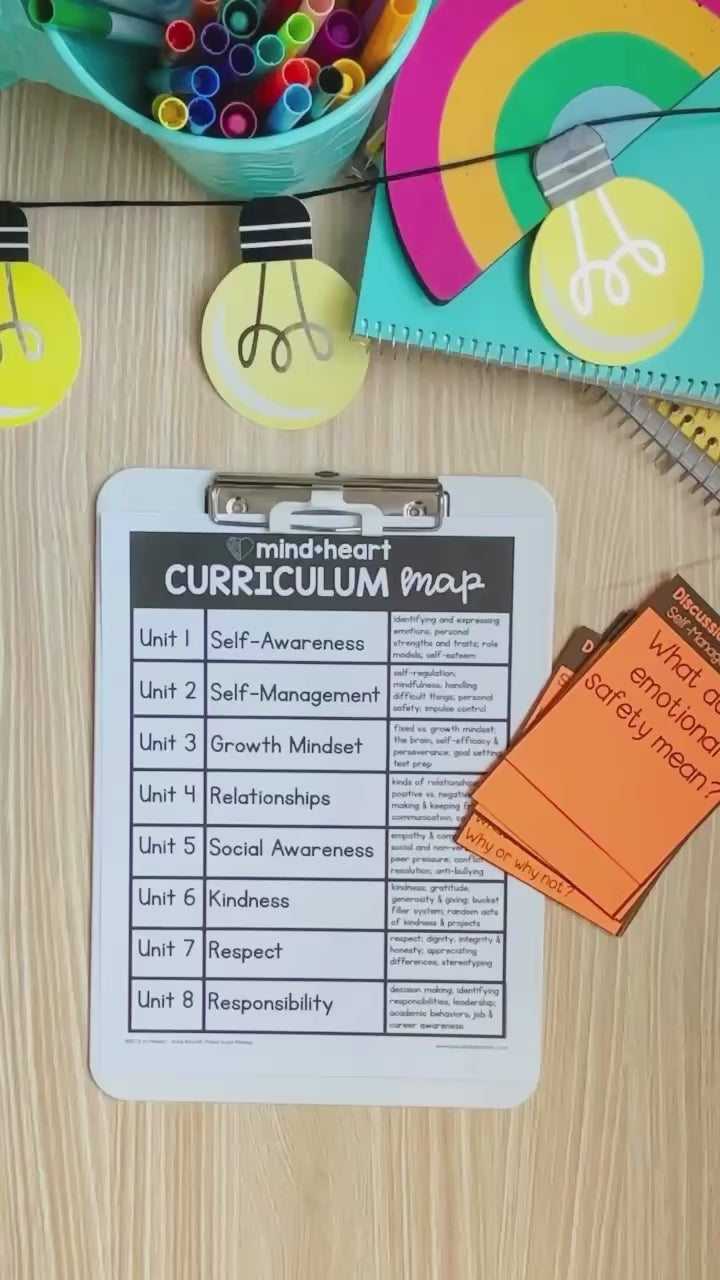 mind+heart
CURRICULUM map
Unit 1
Self-Awareness
identifying and expressing
emotions; personal
strengths and traits; role
models; self-esteem
Unit 2
Self-Management
self-regulation,
mindfulness, handling
difficult things; personal
safety; impulse control
Unit 3
Growth Mindset
fixed vs. growth mindset;
the brain; self-efficacy &
perseverance, goal setting
test prep
Unit 4
Relationships
kinds of relationships
positive vs. negative
making & keeping
communication,
Unit 5
Social Awareness
empathy &
social and
peer pressure; conflict
resolution; anti-bullying
Unit 6
Kindness
kindness; gratitude;
generosity & giving; bucket
filler system; random acts
of kindness & projects
Unit 7
Respect
respect; dignity, integrity &
honesty; appreciating
differences, stereotyping
Unit 8
Responsibility
decision making, identifying
responsibilities, leadership;
academic behaviors, job &
career awareness
Discussi
Self-Manag
What do
emotional
safety mean?
Why or why not?